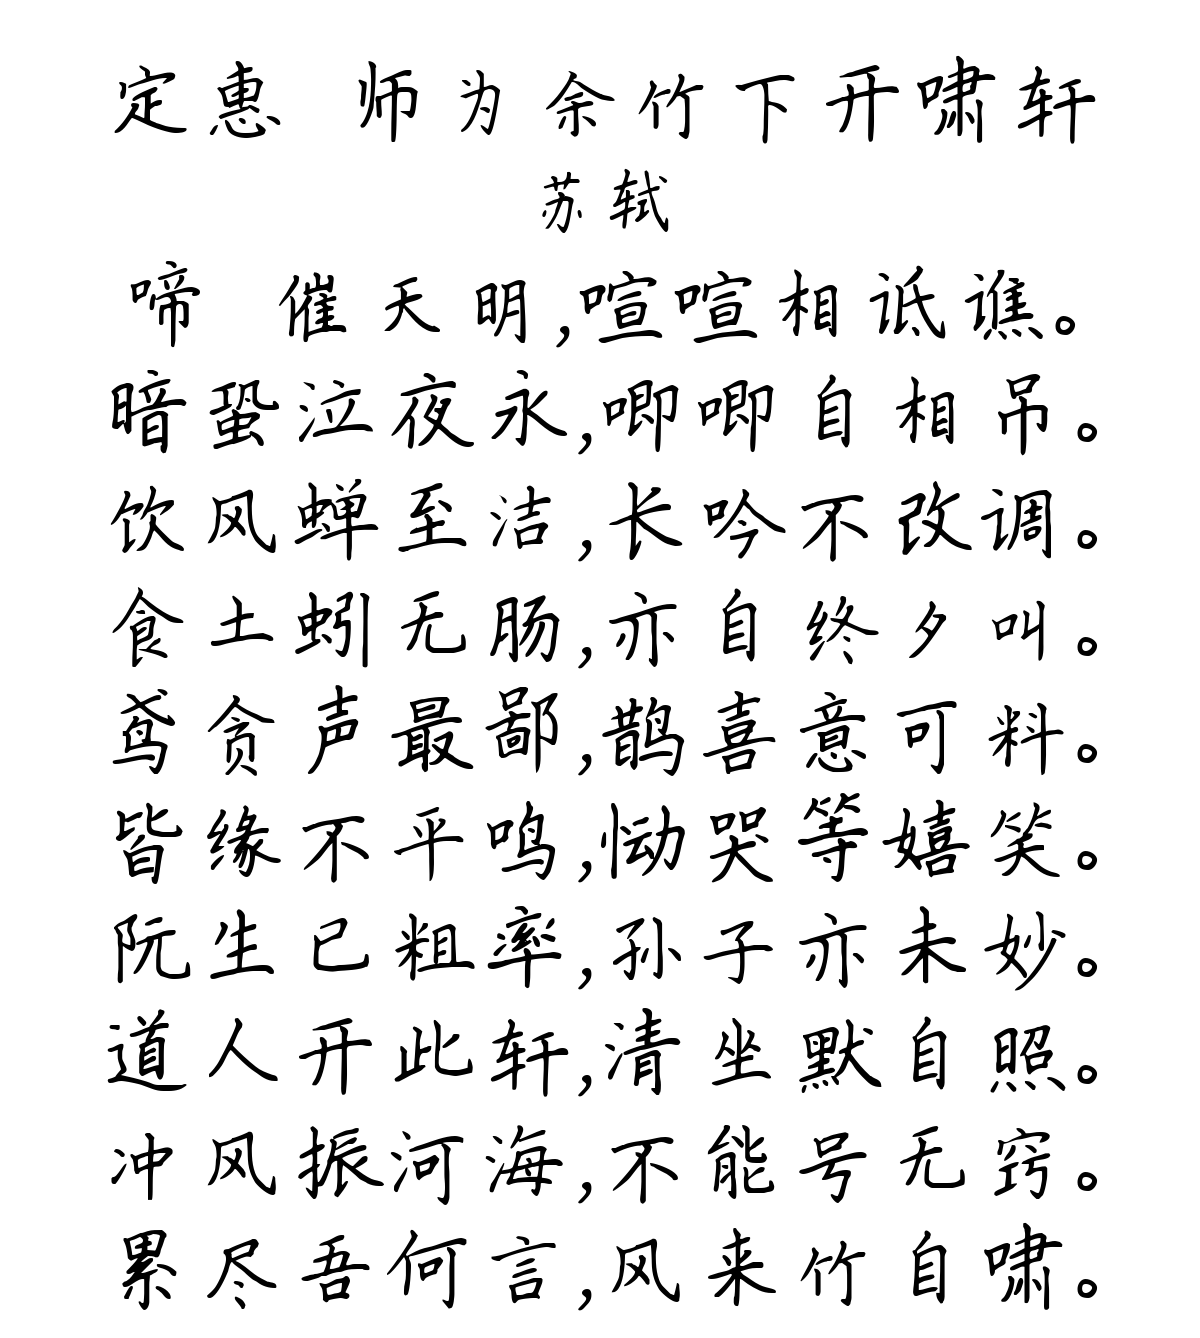 定惠 师为余竹下开啸轩
苏轼
啼 催天明,喧喧相诋谯。
暗蛩泣夜永,唧唧自相吊。
饮风蝉至洁,长吟不改调。
食土蚓无肠,亦自终夕叫。
鸢贪声最鄙,鹊喜意可料。
皆缘不平鸣,恸哭等嬉笑。
阮生已粗率,孙子亦未妙。
道人开此轩,清坐默自照。
冲风振河海,不能号无窍。
累尽吾何言,风来竹自啸。